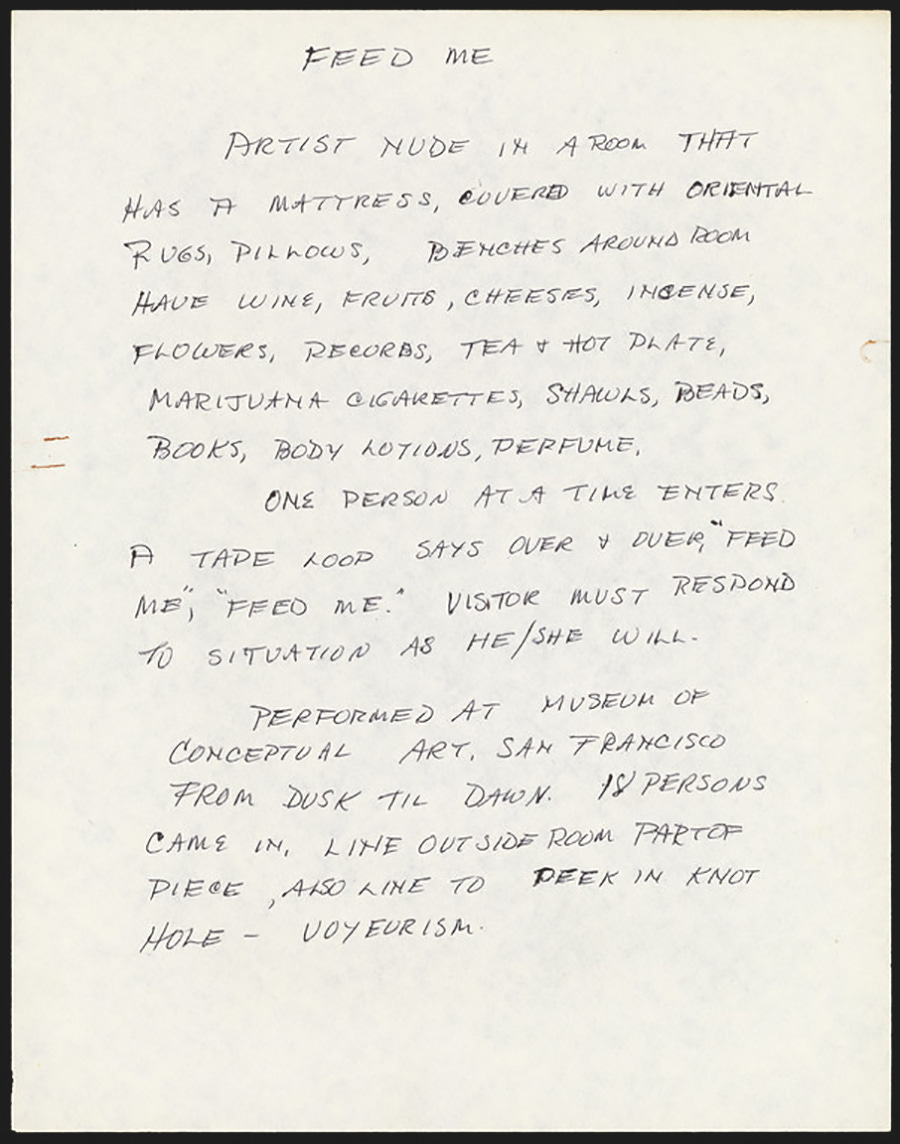 FEED ME
ARTIST NUDE IN A ROOM THAT
HAS A MATTRESS, COVERED WITH ORIENTAL
RUGS, PILLOWS, BENCHES AROUND ROOM
HAVE WINE, FRUITS, CHEESES, INCENSE,
FLOWERS, RECORDS, TEA & HOT PLATE,
MARIJUANA CIGARETTES, SHAWLS, BEADS,
BOOKS, BODY LOTIONS, PERFUME.
ONE PERSON AT A TIME ENTERS
A TAPE LOOP SAYS OVER & OVER, "FEED
ME", "FEED ME." VISITOR MUST RESPOND
TO SITUATION AS HE/SHE WILL.
PERFORMED AT MUSEUM OF
CONCEPTUAL ART. SAN FRANCISCO
FROM DUSK TIL DAWN. 18 PERSONS
CAME IN. LINE OUTSIDE ROOM PART OF
PIECE, ALSO LINE TO PEEK IN KNOT
HOLE - VOYEURISM.